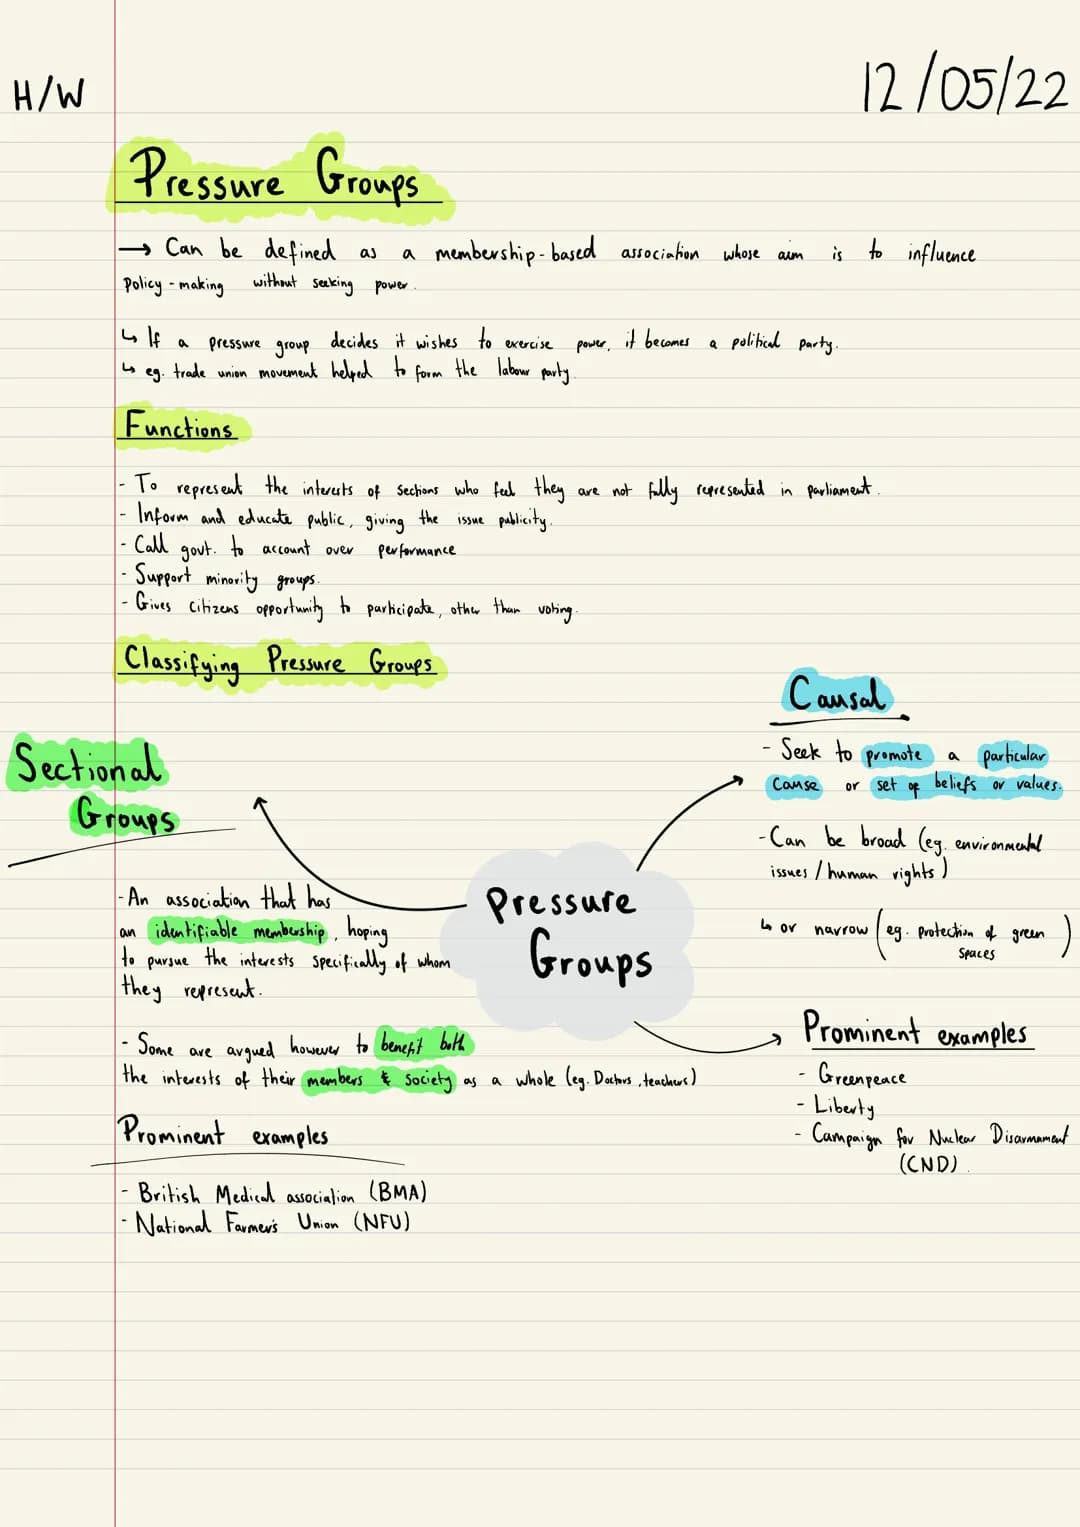 H/W
12/05/22
Pressure Groups
→ Can be defined as a membership-based association whose aim is to influence
Policy-making without seeking power.
↳ If a pressure group decides it wishes to exercise power, it becomes a political party.
↳ eg. trade union movement helped to form the labour party.
Functions
- To represent the interests of sections who feel they are not fully represented in parliament.
- Inform and educate public, giving the issue publicity.
- Call govt. to account over performance
- Support minority groups.
- Gives citizens opportunity to participate, other than voting.
Classifying Pressure Groups
Sectional
Groups
- An association that has
an identifiable membership, hoping
to pursue the interests specifically of whom
they represent.
- Some are argued however to benefit both
the interests of their members & society as a whole (eg. Doctors, teachers)
Prominent examples
- British Medical association (BMA)
- National Farmer's Union (NFU)
Pressure
Groups
Causal
- Seek to promote a particular
cause or set of beliefs or values.
- Can be broad (eg. environmental
issues / human rights)
↳ or narrow (eg. protection of green
spaces)
Prominent examples
- Greenpeace
- Liberty
- Campaign for Nuclear Disarmament
(CND).